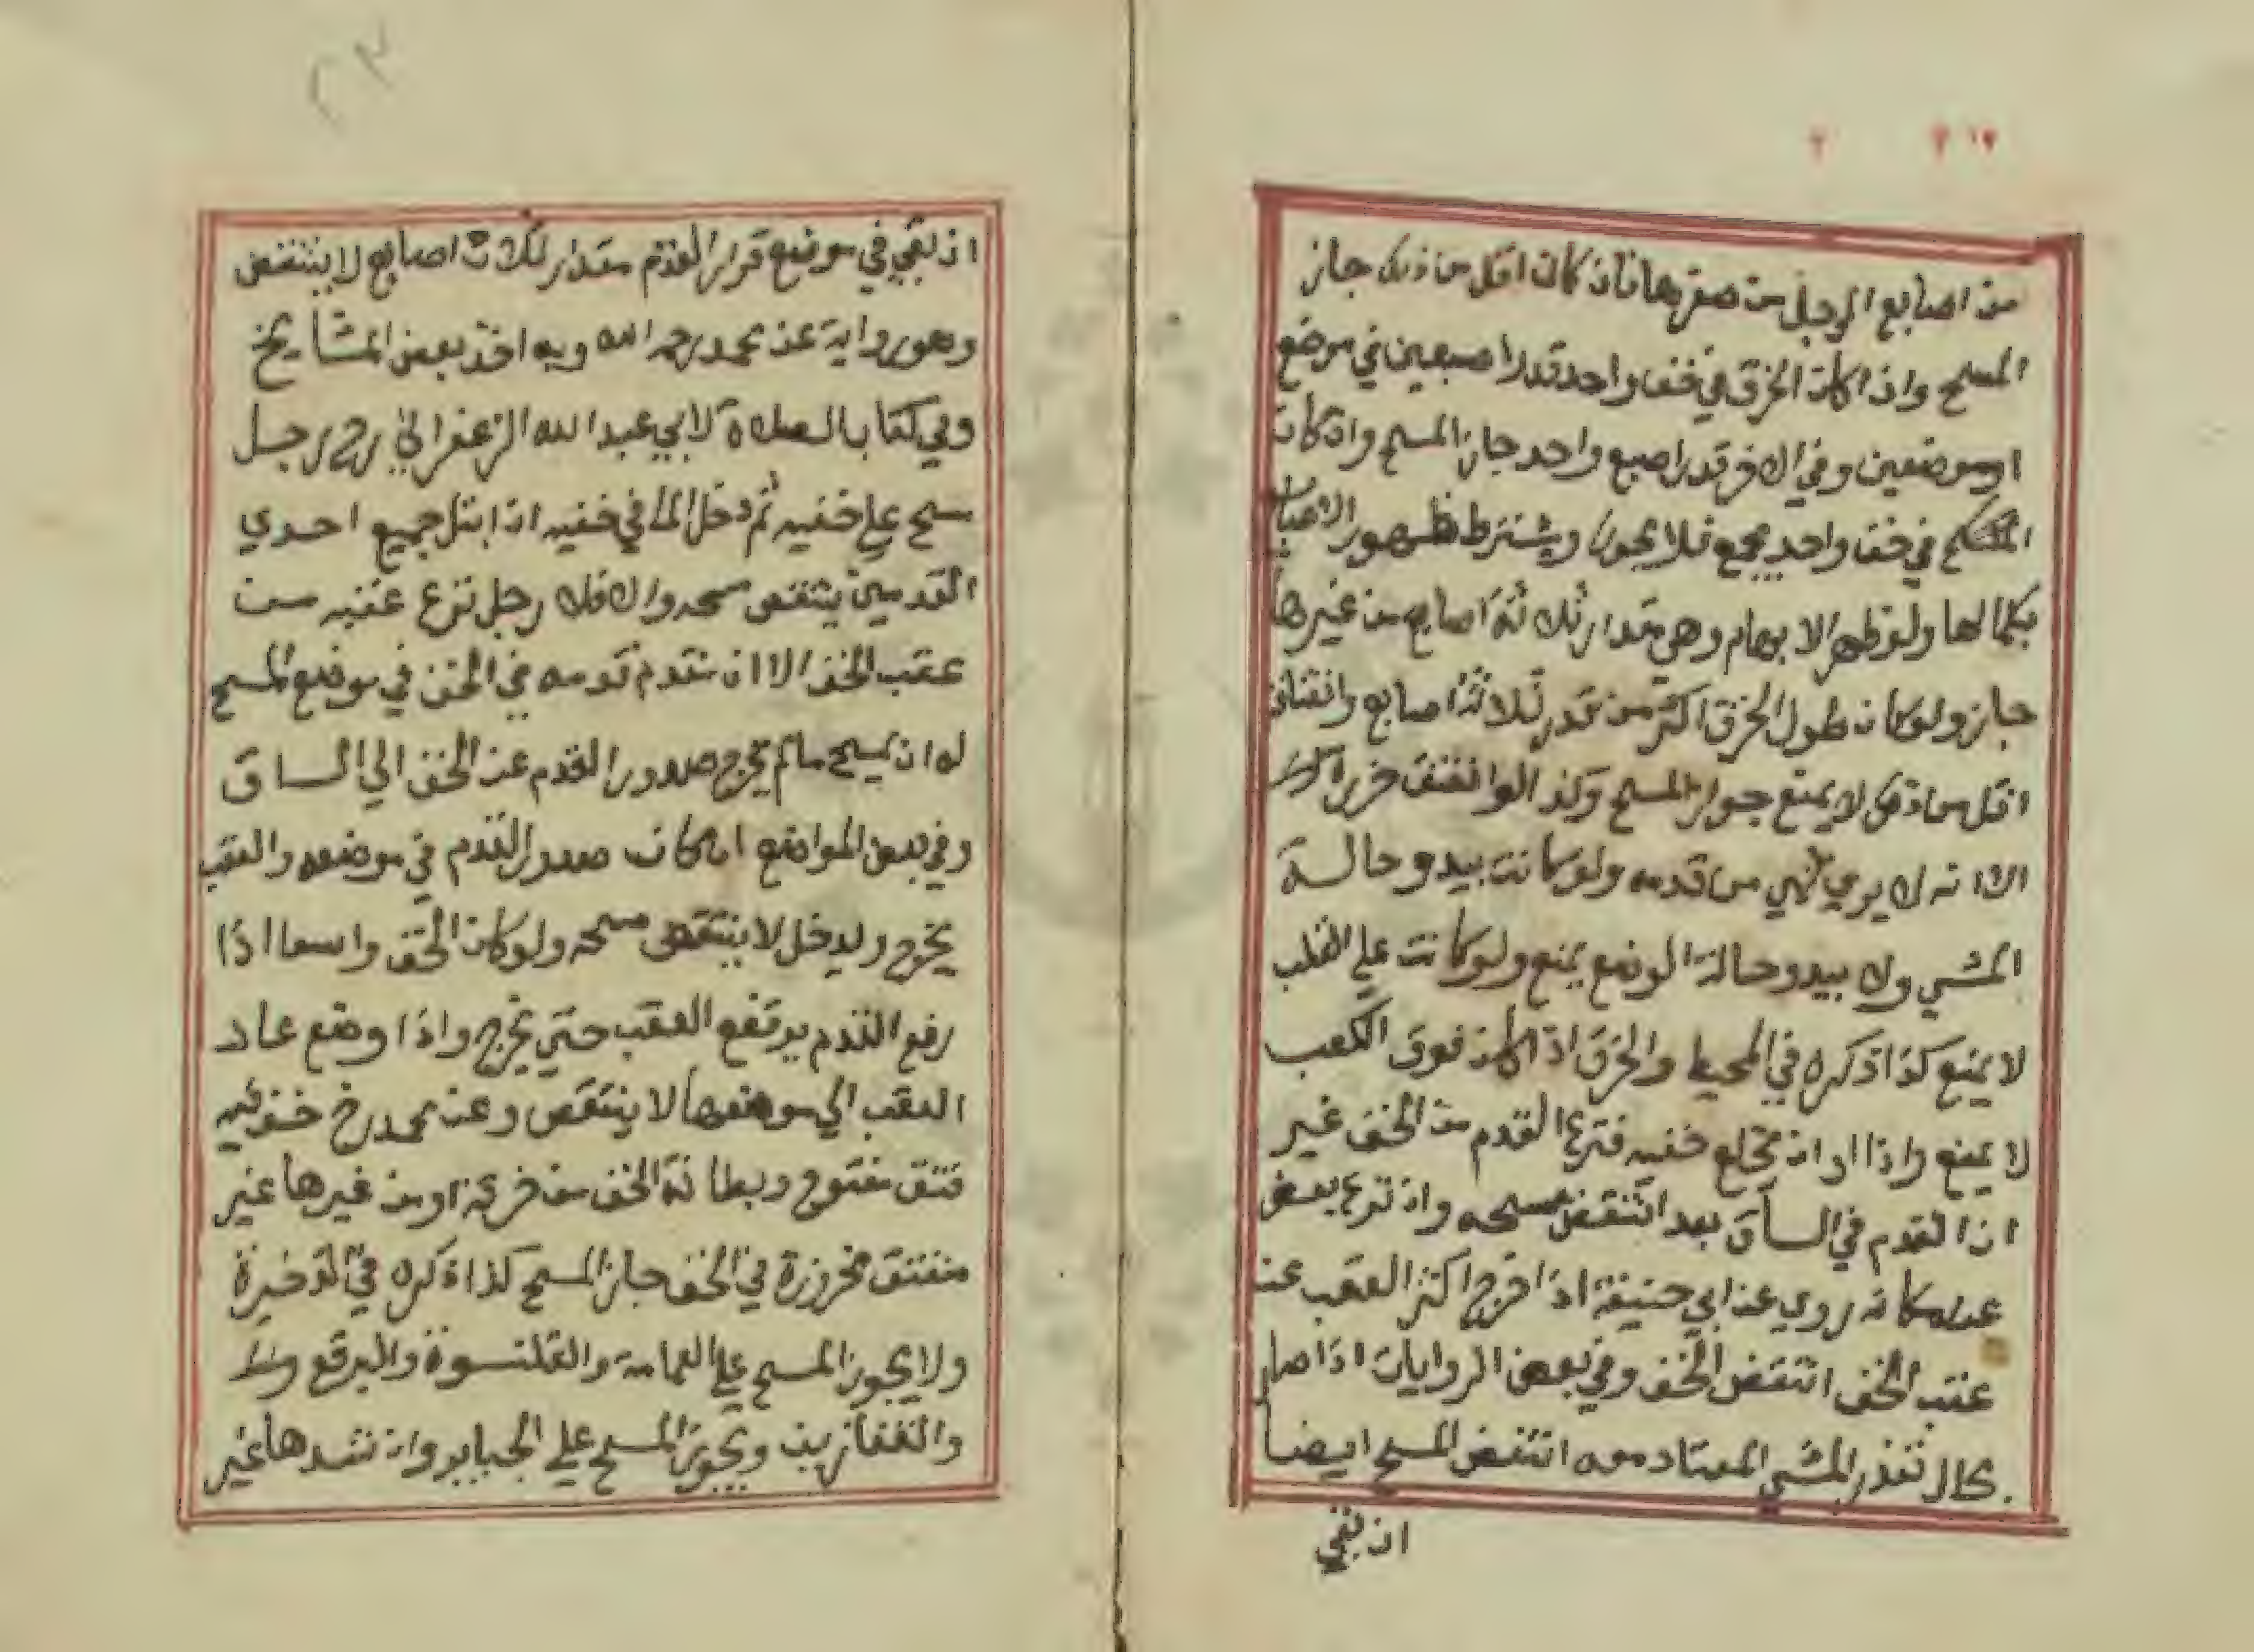 من اصابع الرجل من صغرها فان كان اقل من ذلك جاز
المسح واذا كان الخرق في خف واحد قدر اصبعين في موضع
او موضعين وفي الاخر قدر اصبع واحد جاز المسح وان كان
في خف واحد يجمع فلا يجوز ويشترط ظهور الاصابع
بكمالها ولو ظهر الابهام وهي مقدار ثلاثة اصابع من غيرها
جاز ولو كان طول الخرق اكثر من قدر ثلاثة اصابع وانفتاح
اقل من ذلك لا يمنع جواز المسح وكذا لو انفتق خرزه
الا انه لا يري شي من قدمه ولو كانت يبدو حالة
المشي ولا يبدو حالة الوضع يمنع ولو كانت علي القلب
لا يمنع كذا ذكره في المحيط والخرق اذا كان فوق الكعب
لا يمنع واذا اراد ان يخلع خفيه فنزع القدم من الخف غير
ان القدم في الساق بعد انتقض مسحه وان نزع بعض
عن مكانه روي عن ابي حنيفة اذا خرج اكثر العقب عن
عقب الخف انتقض الخف وفي بعض الروايات اذا صار
بحال تعذر المشي المعتاد معه انتقض المسح ايضا
ان بقي
٢٣
ان بقي في موضع قرار القدم مقدار ثلاث اصابع لا ينتقض
وهو رواية عن محمد رحمه الله وبه اخذ بعض المشايخ
وفي كتاب الصلاة لابي عبد الله الزعفراني رح رجل
مسح علي خفيه ثم دخل الما في خفيه ان ابتل جميع احدي
القدمين ينتقض مسحه والا فلا رجل نزع عقبه من
عقب الخف الا ان مقدم قدمه في الخف في موضع المسح
له ان يمسح مالم يخرج صدور القدم عن الخف الي الساق
وفي بعض المواضع ان كان صدور القدم في موضعه والعقب
يخرج ويدخل لا ينتقض مسحه ولو كان الخف واسعا اذا
رفع القدم يرتفع العقب حتي يخرج واذا وضع عاد
العقب الي موضعها لا ينتقض وعن محمد رح خف فيه
فتق مفتوح وبطانة الخف من خرقة او من غيرها غير
منفتق مخروزة في الخف جاز المسح كذا ذكره في الذخيرة
ولا يجوز المسح علي العمامة والقلنسوة والبرقع ولا
والقفازين ويجوز المسح علي الجباير وان شدها غير